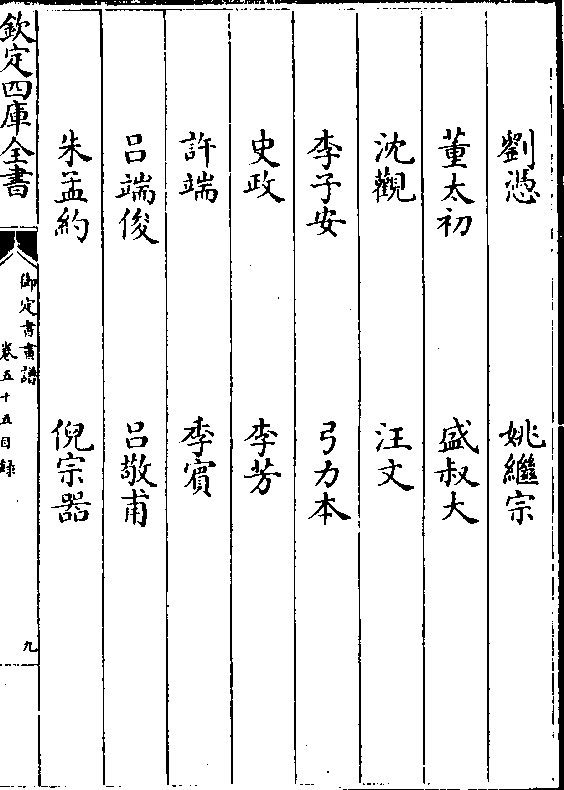 劉憑　姚繼宗
董太初　盛叔大
沈觀　汪文
李子安　弓力本
史政　李芳
許端　季賓
呂端俊　呂敬甫
朱孟約　倪宗器
欽定四庫全書
御定書畫譜
卷五十五目録
九